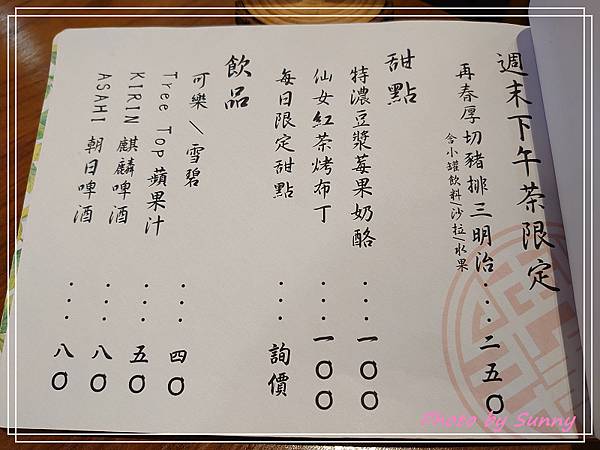 週末下午茶限定
再春厚切豬排三明治...二五〇
含小罐飲料/沙拉/水果
甜點
特濃豆漿莓果奶酪...一〇〇
仙女紅茶烤布丁...一〇〇
每日限定甜點...詢價
飲品
可樂/雪碧...四〇
Tree Top蘋果汁...五〇
KIRIN 麒麟啤酒...八〇
ASAHI 朝日啤酒...八〇
Photo by Sunny